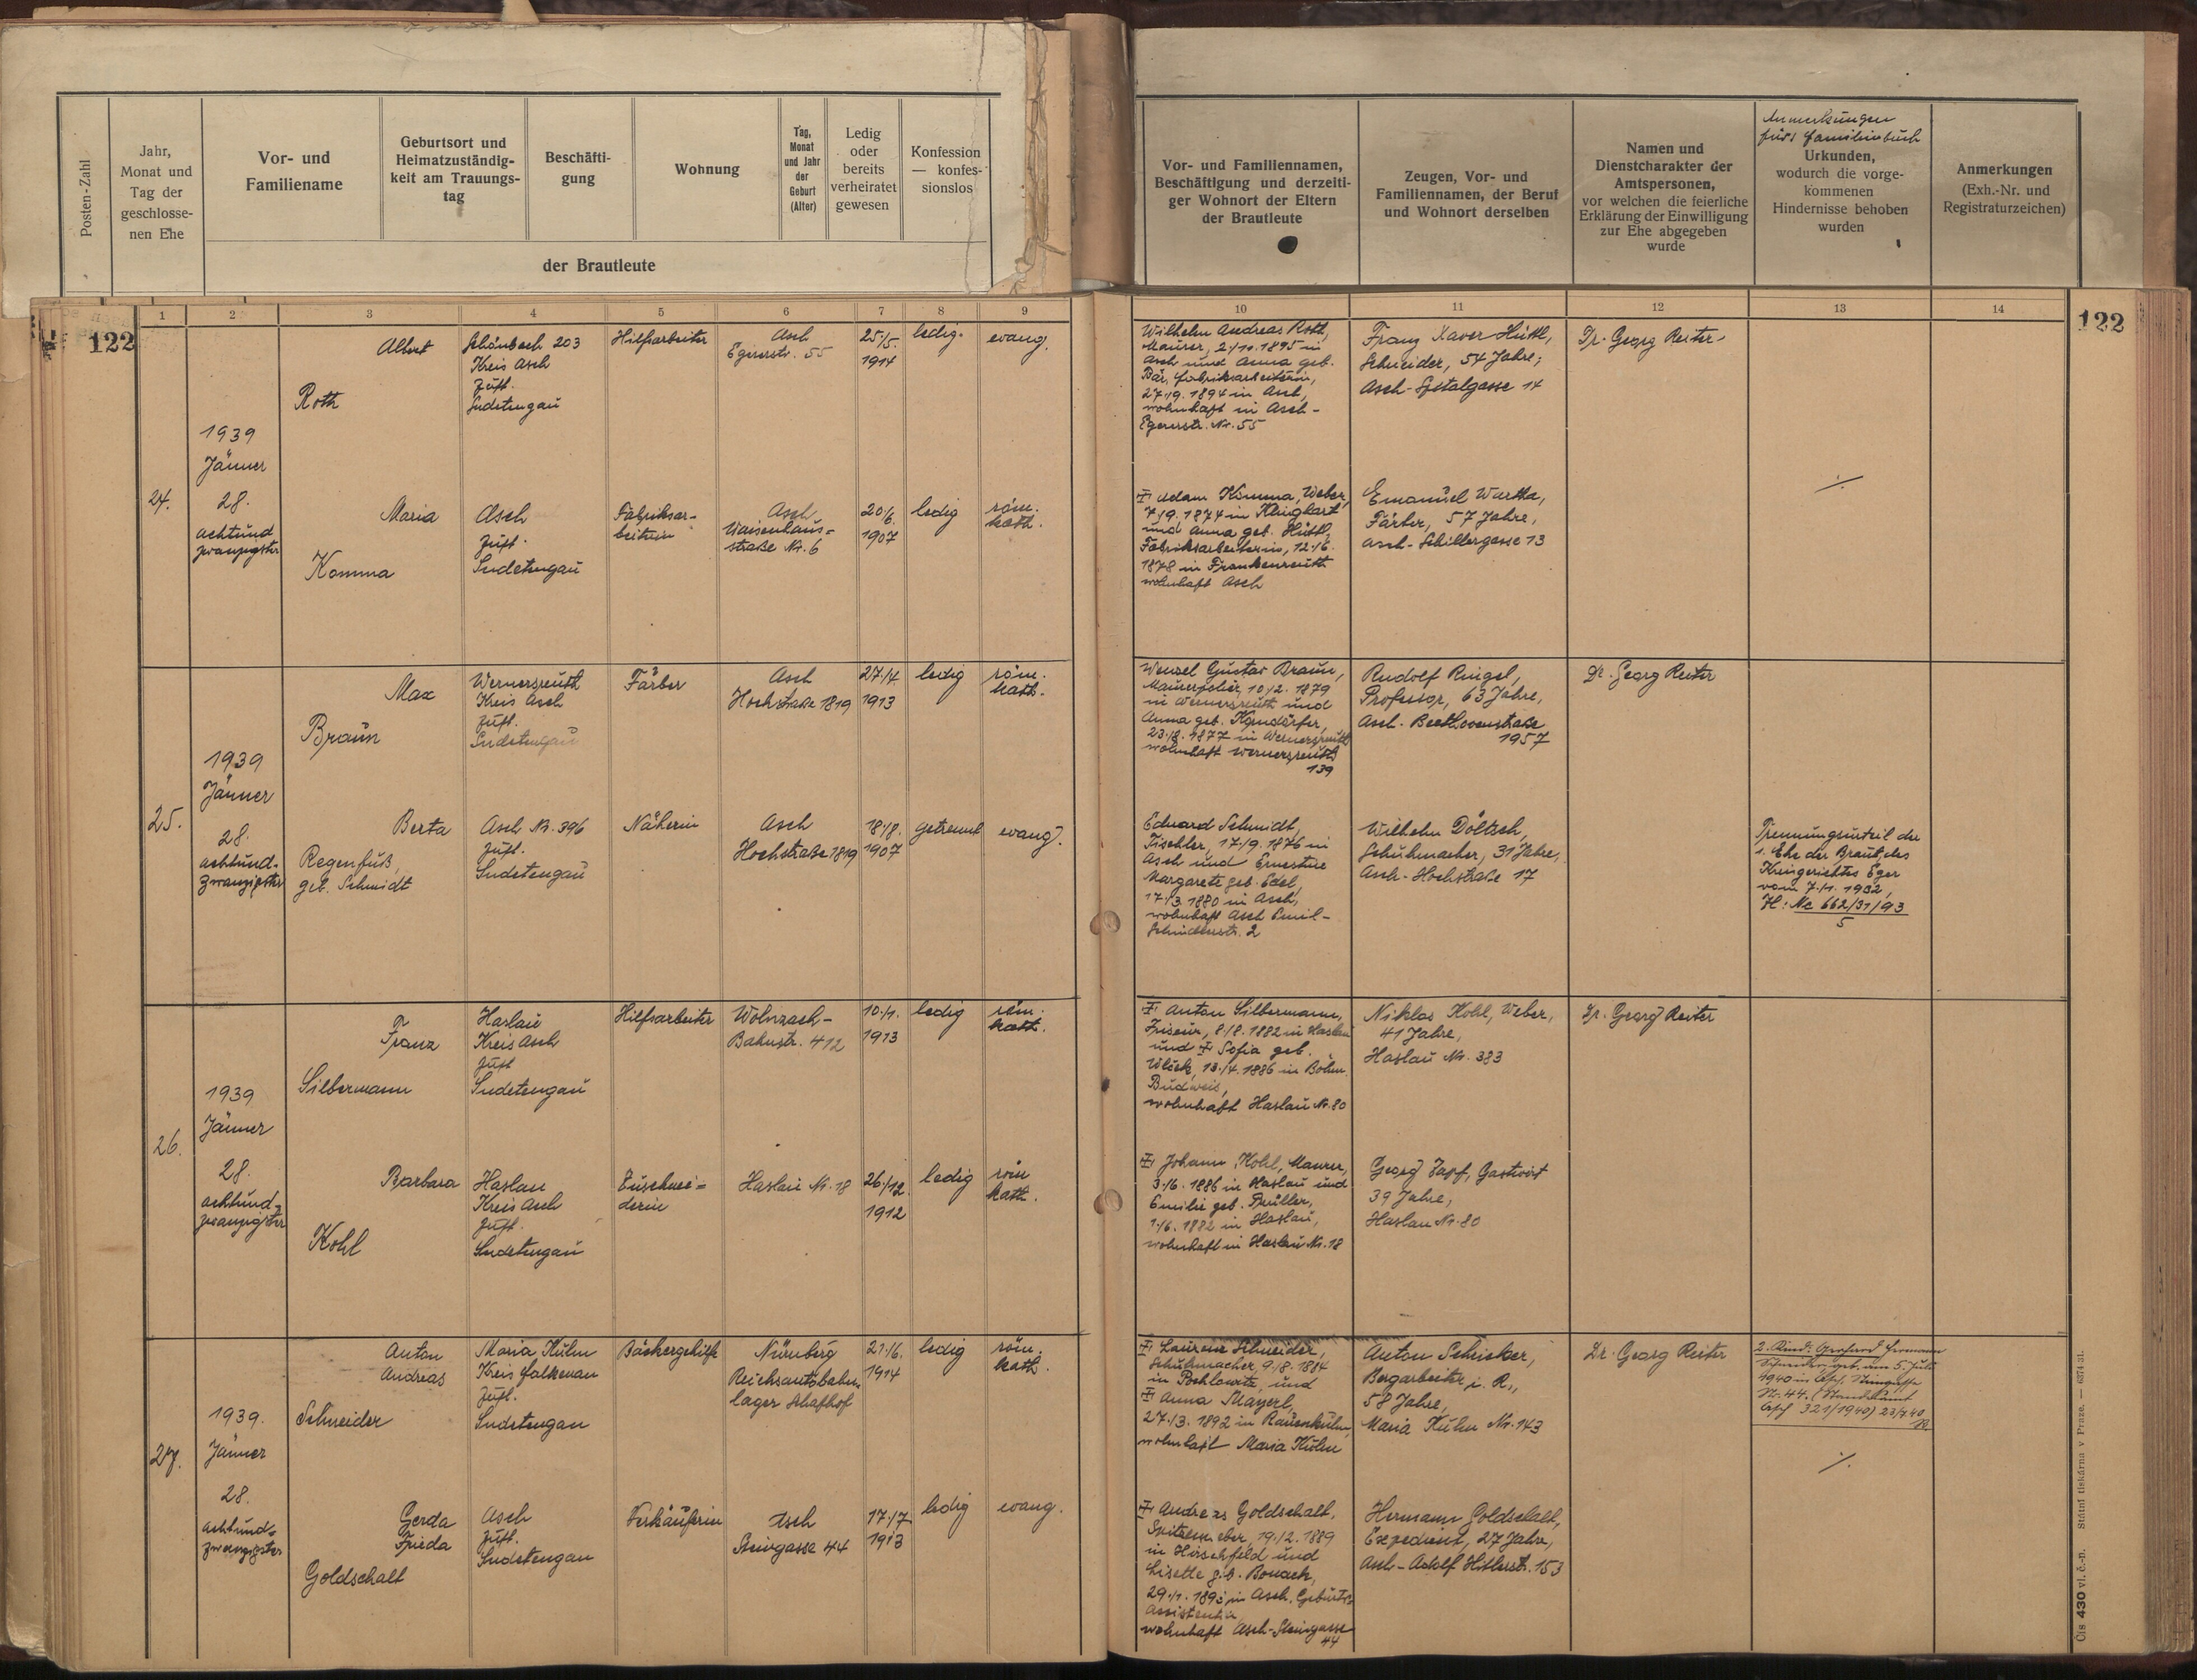 Posten-Zahl
Jahr,
Monat und
Tag der
geschlosse-
nen Ehe
Vor- und
Familiename
Geburtsort und
Heimatzuständig-
keit am Trauungs-
tag
Beschäfti-
gung
Wohnung
Tag,
Monat
und Jahr
der
Geburt
(Alter)
Ledig
oder
bereits
verheiratet
gewesen
Konfession
— konfes-
sionslos
der Brautleute
Vor- und Familiennamen,
Beschäftigung und derzeiti-
ger Wohnort der Eltern
der Brautleute
Zeugen, Vor- und
Familiennamen, der Beruf
und Wohnort derselben
Namen und
Dienstcharakter der
Amtspersonen,
vor welchen die feierliche
Erklärung der Einwilligung
zur Ehe abgegeben
wurde
Anmerkungen
fürs Familienbuch
Urkunden,
wodurch die vorge-
kommenen
Hindernisse behoben
wurden
Anmerkungen
(Exh.-Nr. und
Registraturzeichen)
1 2 3 4 5 6 7 8 9 10 11 12 13 14
122
122
24.
1939
Jänner
28.
achtund
zwanzigster
Albert
Roth
Schönbach 203
Kreis Asch
zust.
Sudetengau
Hilfsarbeiter
Asch
Egererstr. 55
25./5.
1914
ledig.
evang.
Wilhelm Andreas Roth,
Maurer, 2./10.1895 in
Asch und Anna geb.
Bär, Fabriksarbeiterin,
27./9. 1894 in Asch,
wohnhaft in Asch-
Egererstr. Nr. 55
Franz Xaver Hüttl,
Schneider, 54 Jahre;
Asch-Spitalgasse 14
Dr. Georg Reiter
Maria
Komma
Asch
zust.
Sudetengau
Fabriksar-
beiterin
Asch
Waisenhaus-
straße Nr. 6
20/6.
1907
ledig
röm.
kath.
Adam Komma, Weber,
7./9. 1874 in
und Anna geb. Hüttl,
Fabriksarbeiterin, 12./6.
1878 in Frankenreuth
wohnhaft Asch
Emanuel Wartha,
Färber, 57 Jahre,
Asch-Schillergasse 13
./.
25.
1939
Jänner
28.
achtund-
zwanzigster
Max
Braun
Wernersreuth
Kreis Asch
zust.
Sudetengau
Färber
Asch
Hochstraße 1819
27./4
1913
ledig
röm.
kath.
Wenzel Gustav Braun,
Maurerpolier, 10./2. 1879
in Wernersreuth und
Anna geb. Korndörfer,
23./8. 1877 in Wernersreuth
wohnhaft Wernersreuth
139
Rudolf Ringel,
Professor, 63 Jahre,
Asch. Beethovenstraße
1957
Dr. Georg Reiter
Berta
Regenfuß,
geb. Schmidt
Asch Nr. 396
zust.
Sudetengau
Näherin
Asch
Hochstraße 1819
18./8.
1907
getrennt
evang.
Eduard Schmidt,
Tischler, 17./9. 1876 in
Asch und Ernestine
Margarete geb. Edel,
17./3. 1880 in Asch,
wohnhaft Asch Emil-
Schindlerstr. 2
Wilhelm Döltsch,
Schuhmacher, 31 Jahre,
Asch-Hochstraße 17
Trennungsurteil der
1. Ehe der Braut, des
Kreisgerichtes Eger
vom 7./1. 1932,
Zl: Nc 662/31/93
5
26.
1939
Jänner
28.
achtund-
zwanzigster
Franz
Silbermann
Haslau
Kreis Asch
zust
Sudetengau
Hilfsarbeiter
Wolnzach-
Bahnstr. 412
10./1.
1913
ledig
röm.
kath.
Anton Silbermann,
Friseur, 8./8. 1882 in Haslau
und Sofia geb.
13./4. 1886 in Böhm.
Budweis,
wohnhaft Haslau Nr. 80
Niklas Kohl, Weber,
41 Jahre,
Haslau Nr. 383
Dr. Georg Reiter
Barbara
Kohl
Haslau
Kreis Asch
zust.
Sudetengau
Zuschnei-
derin
Haslau Nr. 18
26/12.
1912
ledig
röm
kath.
Johann Kohl, Maurer,
3./6. 1886 in Haslau und
Emilie geb.
1./6. 1882 in Haslau,
wohnhaft in Haslau Nr. 18
Georg Zapf, Gastwirt
39 Jahre,
Haslau Nr. 80
27.
1939.
Jänner
28.
achtund-
zwanzigster
Anton
Andreas
Schneider
Maria Kulm
Kreis Falkenau
zust.
Sudetengau
Bäckergehilfe
Nürnberg
Reichsautobahn-
lager Schafhof
21./6.
1914
ledig
röm.
kath.
Laurenz Schneider,
Schuhmacher, 9./8. 1884
in Pochlowitz, und
Anna Mayerl,
27./3. 1892 in Rauenkulm,
wohnhaft Maria Kulm
Anton Schricker,
Bergarbeiter i. R.,
58 Jahre,
Maria Kulm Nr. 143
Dr. Georg Reiter
2. Kind: Gerhard Hermann
Schneider, geb. am 5. Juli
1940 in Asch, Steingasse
Nr. 44. (Standesamt
Asch 321/1940) 23/7.40
./.
Gerda
Frieda
Goldschalt
Asch
zust.
Sudetengau
Verkäuferin
Asch
Steingasse 44
17./7
1913
ledig
evang.
Andreas Goldschalt,
19./2. 1889
in Hirschfeld und
Lisette geb.
in Asch, Geburts-
assistentin
wohnhaft Asch-Steingasse
44
Hermann Goldschalt,
Expedient, 27 Jahre,
Asch-Adolf Hitlerstr. 153
Čís 430 vl. č.-n. Státní tiskárna v Praze. — 6374-31.